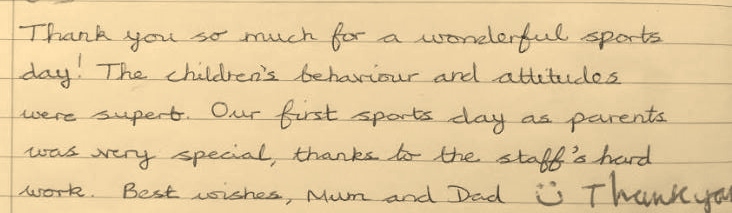 Thank you so much for a wonderful sports
day! The children's behaviour and attitudes
were superb. Our first sports day as parents
was very special, thanks to the staff's hard
work. Best wishes, Mum and Dad Thank you